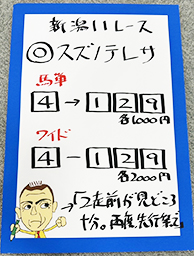 新潟11レース
◎スズノテレサ
馬単
4→129
各1000円
ワイド
4-129
各2000円
「2走前が見どころ
十分。再度先行策で